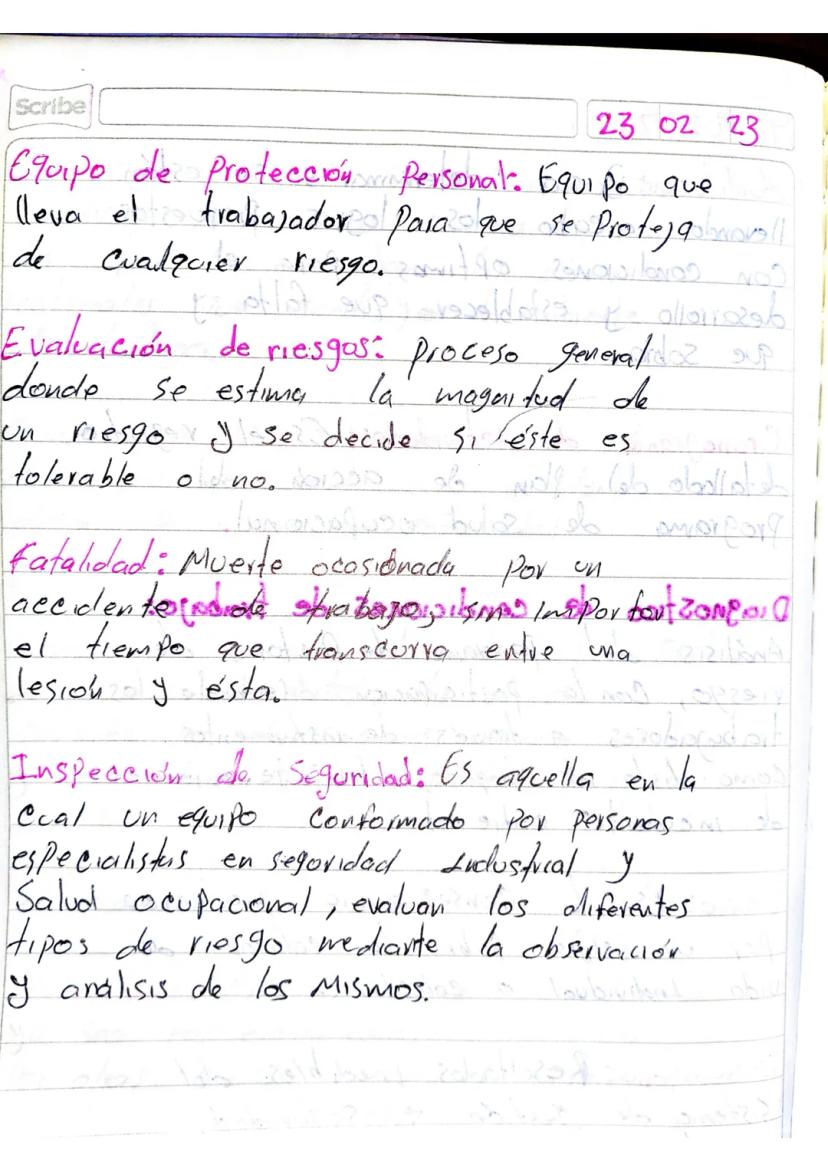 Scribe
23 02 23
Equipo de Protección Personal: Equipo que
lleva el trabajador para que se proteja
de cualquier riesgo.
Evaluación de riesgos: Proceso general
donde se estima la magnitud de
un riesgo y se decide si éste es
tolerable o no.
Fatalidad: Muerte ocasionada por un
accidente de trabajo, sin importar
el tiempo que transcurra entre una
lesión y ésta.
Inspección de Seguridad: Es aquella en la
cual un equipo conformado por personas
especialistas en seguridad Industrial y
Salud ocupacional, evaluan los diferentes
tipos de riesgo mediante la observación
y análisis de los mismos.